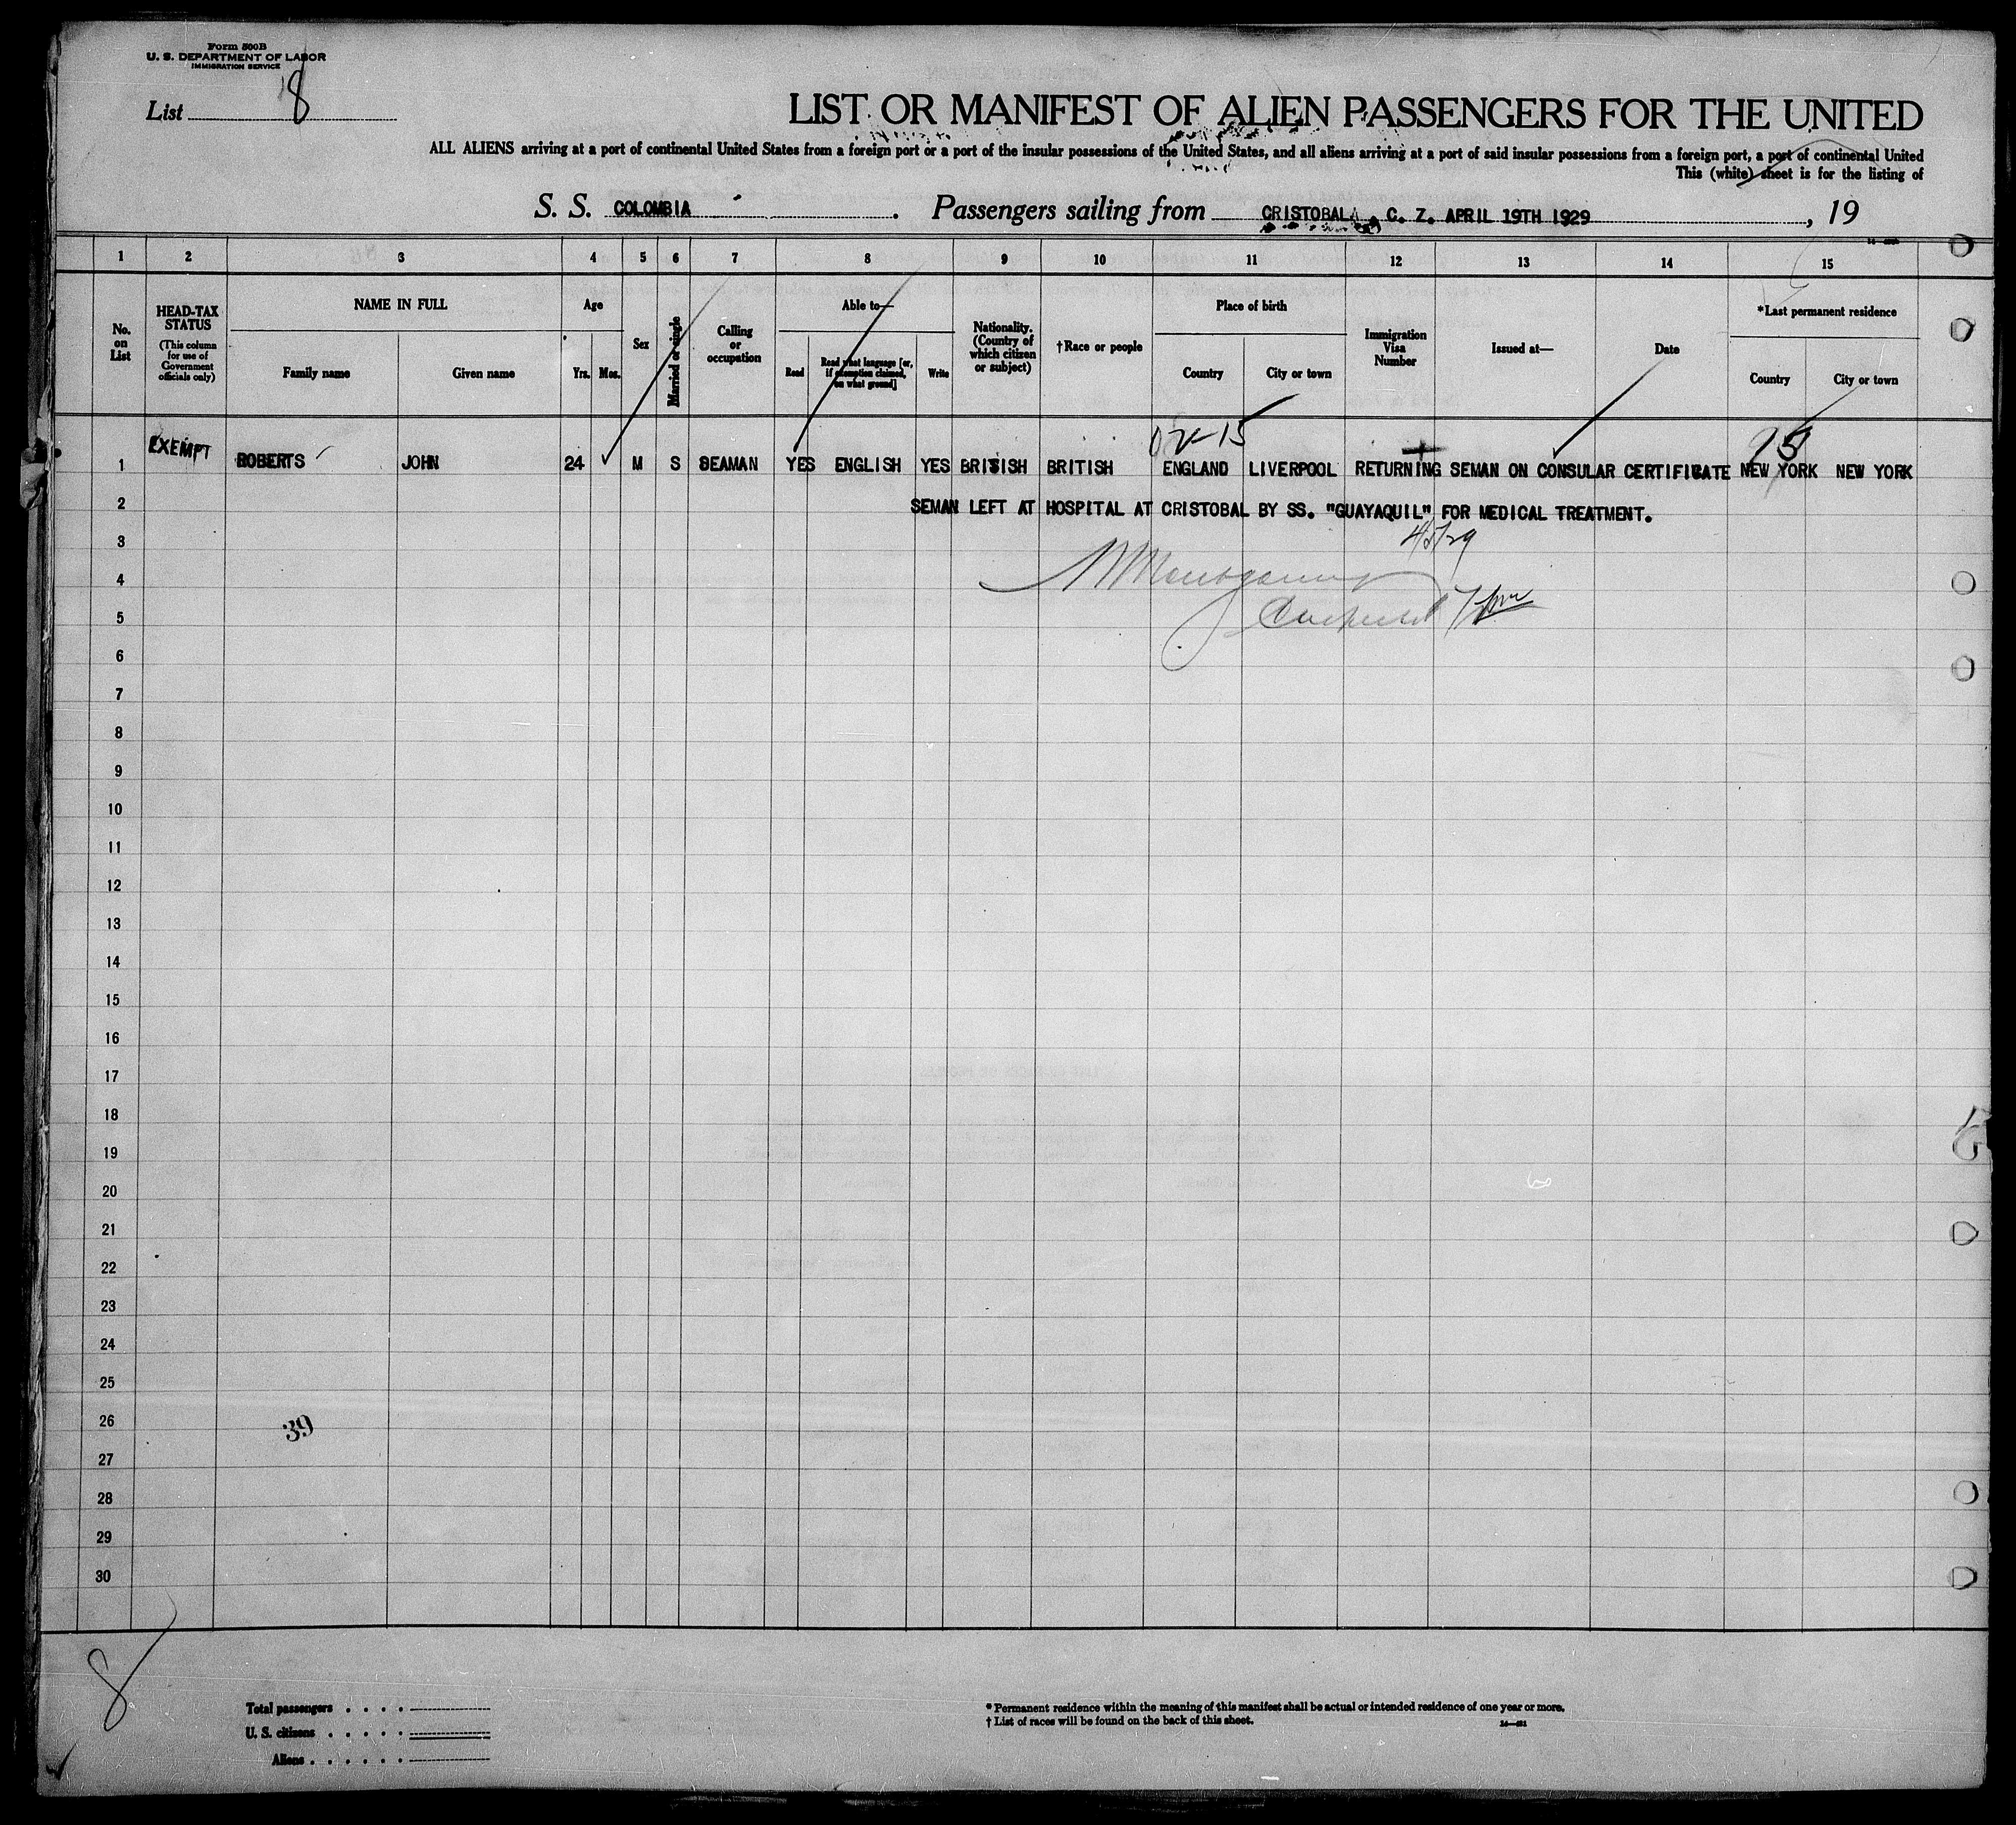 Form 500B
U. S. DEPARTMENT OF LABOR
IMMIGRATION SERVICE
List 8
LIST OR MANIFEST OF ALIEN PASSENGERS FOR THE UNITED
ALL ALIENS arriving at a port of continental United States from a foreign port or a port of the insular possessions of the United States, and all aliens arriving at a port of said insular possessions from a foreign port, a port of continental United
This (white) sheet is for the listing of
S. S. COLOMBIA . Passengers sailing from CRISTOBAL, C. Z. APRIL 19TH 1929 , 19
1 2 3 4 5 6 7 8 9 10 11 12 13 14 15
No. on List
HEAD-TAX STATUS
(This column for use of Government officials only)
NAME IN FULL
Family name
Given name
Age
Yrs. Mos.
Sex
Married or single
Calling or occupation
Able to—
Read
Read what language [or, if exemption claimed, on what ground]
Write
Nationality. (Country of which citizen or subject)
†Race or people
Place of birth
Country
City or town
Immigration Visa Number
Issued at—
Date
*Last permanent residence
Country
City or town
1 EXEMPT ROBERTS JOHN 24 M S SEAMAN YES ENGLISH YES BRISISH BRITISH ENGLAND LIVERPOOL RETURNING SEMAN ON CONSULAR CERTIFICATE NEW YORK NEW YORK
2 SEMAN LEFT AT HOSPITAL AT CRISTOBAL BY SS. "GUAYAQUIL" FOR MEDICAL TREATMENT.
3
4
5
6
7
8
9
10
11
12
13
14
15
16
17
18
19
20
21
22
23
24
25
26
39
27
28
29
30
8
Total passengers
U. S. citizens
Aliens
* Permanent residence within the meaning of this manifest shall be actual or intended residence of one year or more.
† List of races will be found on the back of this sheet.